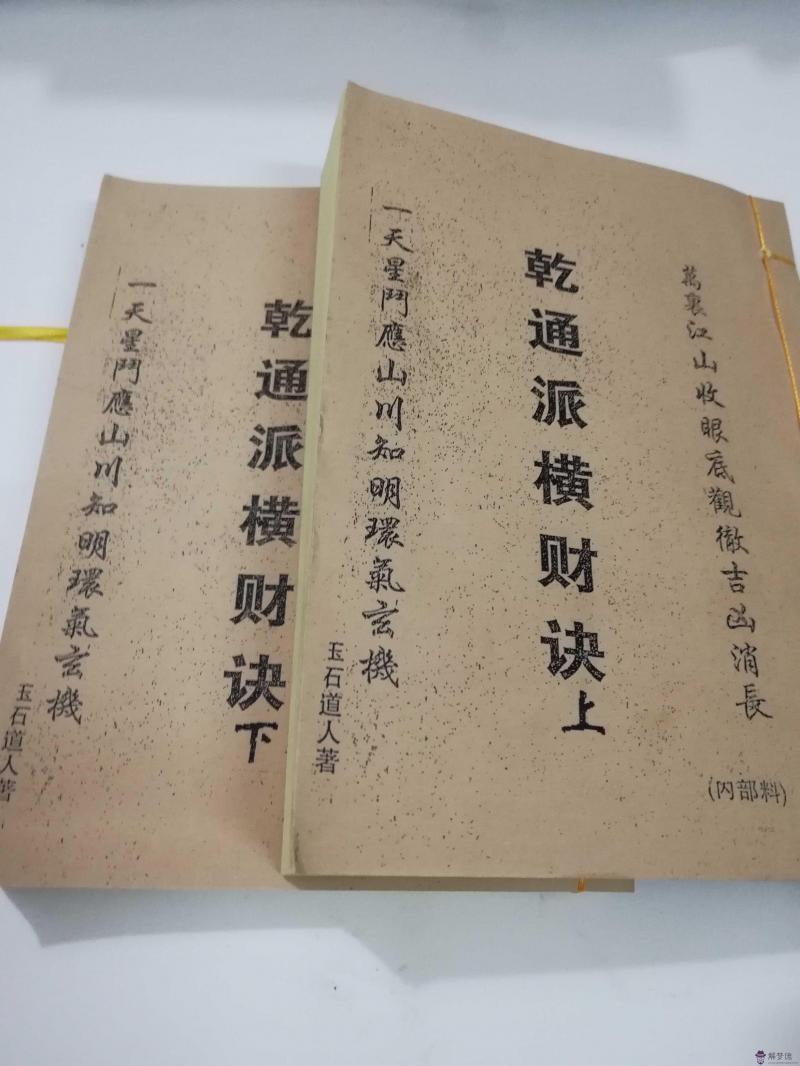 萬裏江山收眼底觀徹吉凶消長
(内部料)
乾通派横财诀上
一天星鬥應山川知明環氣玄機
玉石道人著
乾通派横财诀下
一天星鬥應山川知明環氣玄機
玉石道人著
解梦佬